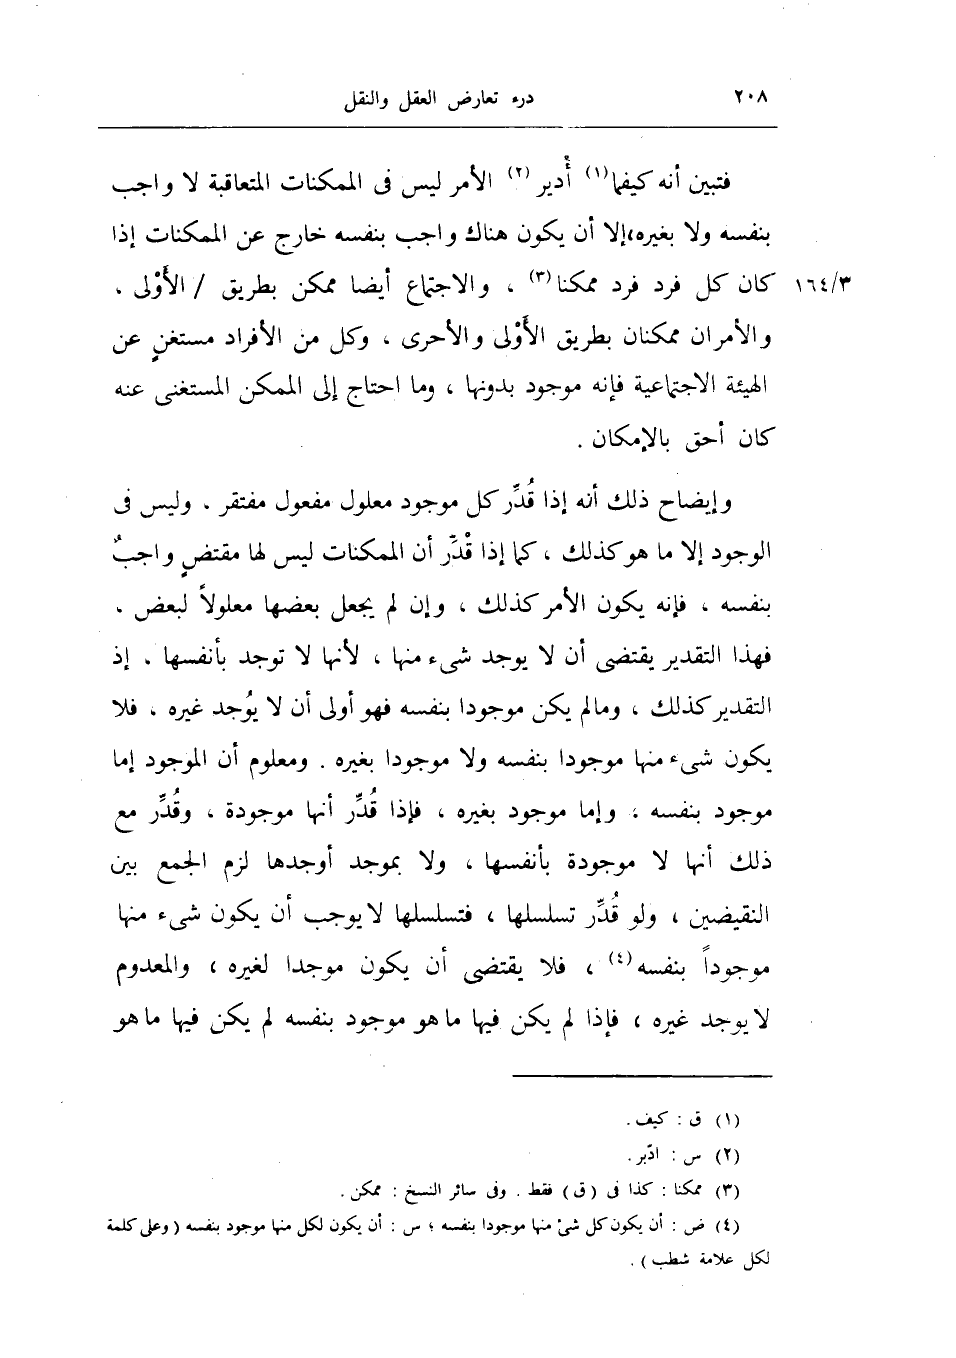 ٢٠٨ درء تعارض العقل والنقل
فتبين أنه كيفما(١) أُدير(٢) الأمر ليس فى الممكنات المتعاقبة لا واجب
بنفسه ولا بغيره،إلا أن يكون هناك واجب بنفسه خارج عن الممكنات إذا
كان كل فرد فرد ممكنا(٣) ، والاجتماع أيضا ممكن بطريق / الأَوْلى . ١٦٤/٣
والأمران ممكنان بطريق الأَوْلى والأحرى ، وكل من الأفراد مستغنٍ عن
الهيئة الاجتماعية فإنه موجود بدونها ، وما احتاج إلى الممكن المستغنى عنه
كان أحق بالإمكان .
وإيضاح ذلك أنه إذا قُدِّر كل موجود معلول مفعول مفتقر . وليس فى
الوجود إلا ما هو كذلك ، كما إذا قْدِّر أن الممكنات ليس لها مقتضٍ واجبٌ
بنفسه ، فإنه يكون الأمر كذلك ، وإن لم يجعل بعضها معلولاً لبعض .
فهذا التقدير يقتضى أن لا يوجد شىء منها ، لأنها لا توجد بأنفسها . إذ
التقدير كذلك ، ومالم يكن موجودا بنفسه فهو أولى أن لا يُوجد غيره ، فلا
يكون شىء منها موجودا بنفسه ولا موجودا بغيره . ومعلوم أن الموجود إما
موجود بنفسه ، وإما موجود بغيره ، فإذا قُدِّر أنها موجودة ، وقُدِّر مع
ذلك أنها لا موجودة بأنفسها ، ولا بموجد أوجدها لزم الجمع بين
النقيضين ، ولو قُدِّر تسلسلها ، فتسلسلها لا يوجب أن يكون شىء منها
موجوداً بنفسه(٤) ، فلا يقتضى أن يكون موجدا لغيره ، والمعدوم
لا يوجد غيره ، فإذا لم يكن فيها ما هو موجود بنفسه لم يكن فيها ما هو
(١) ق : كيف .
(٢) س : ادّبر .
(٣) ممكنا : كذا فى (ق) فقط . وفى سائر النسخ : ممكن .
(٤) ض : أن يكون كل شئ منها موجودا بنفسه ؛ س : أن يكون لكل منها موجود بنفسه ( وعلى كلمة
لكل علامة شطب ) .